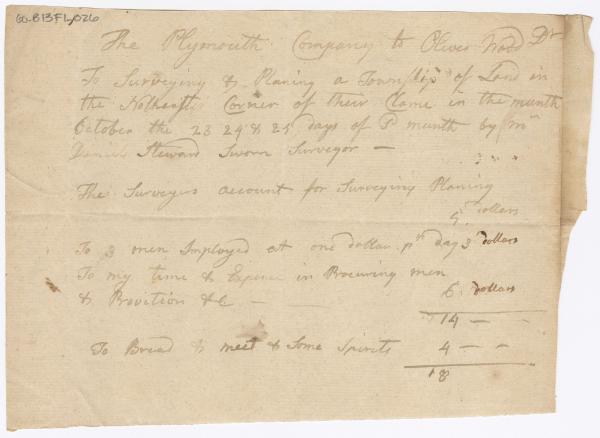 60.B13F1.026
The Plymouth Company to Oliver Wood Dr
To Surveying & Planing a Township of Land in
the Corner of their Clame in the munth
October the 23 24 & 25 days of munth by Mr
Steward Sworn Surveyor —
The Surveyers account for Surveying Planing
5 dollars
To 3 men Imployed at one dollar pr day 3 dollars
To my time & Expence in Procuring men
& Provition &c — 6 dollars
14 — —
To Bread & meet & Some Spirits 4 — —
18